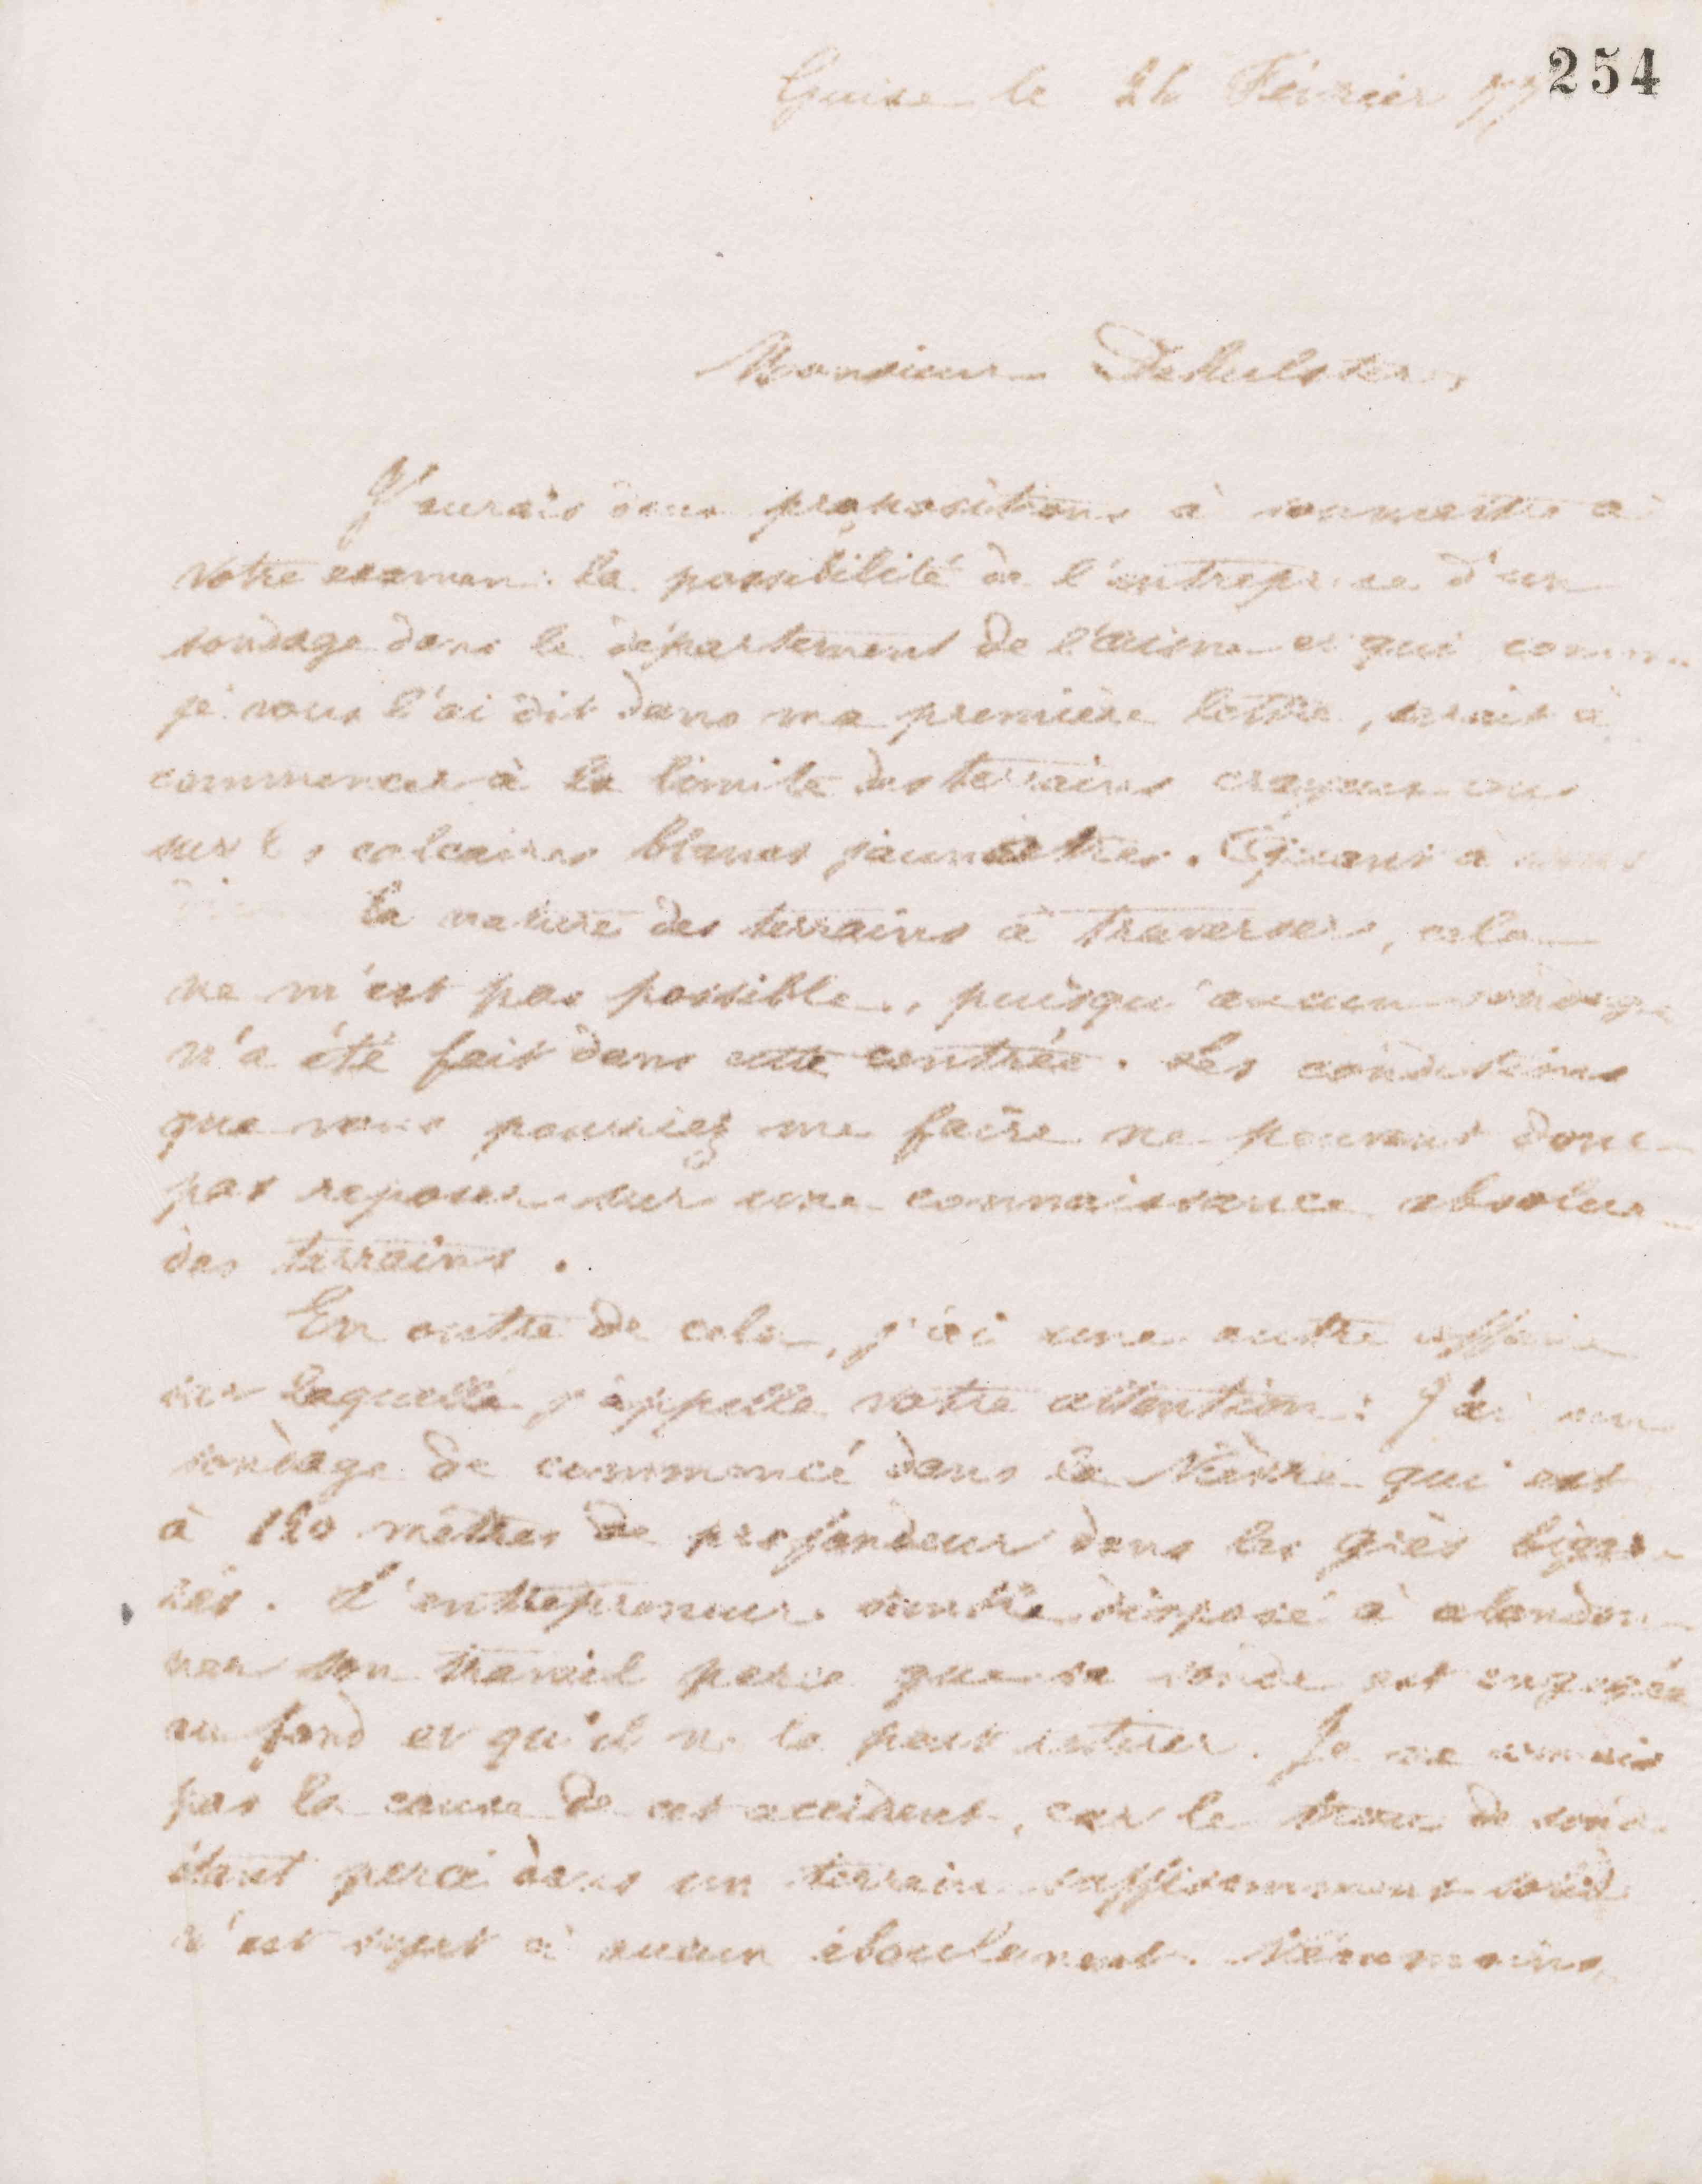 254
Guise le 26 Février 77
Monsieur Dehulster,
J'aurais deux propositions à soumettre à
votre examen : la possibilité de l'entreprise d'un
sondage dans le département de l'Aisne et qui comme
je vous l'ai dit dans ma première lettre, serait à
commencer à la limite des terrains crayeux ou
sur les calcaires blancs jaunâtres. Quant à vous
la nature des terrains à traverser, cela
ne m'est pas possible, puisqu'aucun sondage
n'a été fait dans cette contrée. Les conditions
que vous pourriez me faire ne peuvent donc
pas reposer sur une connaissance absolue
des terrains.
En outre de cela, j'ai une autre affaire
sur laquelle j'appelle votre attention : J'ai un
sondage de commencé dans la Nièvre qui est
à 120 mètres de profondeur dans les grès bigar-
rés. L'entrepreneur semble disposé à abandon-
ner son travail parce que sa sonde est engagée
au fond et qu'il ne la peut retirer. Je ne connais
pas la cause de cet accident, car le trou de sonde
étant percé dans un terrain suffisamment solide
n'est sujet à aucun éboulement. Néanmoins